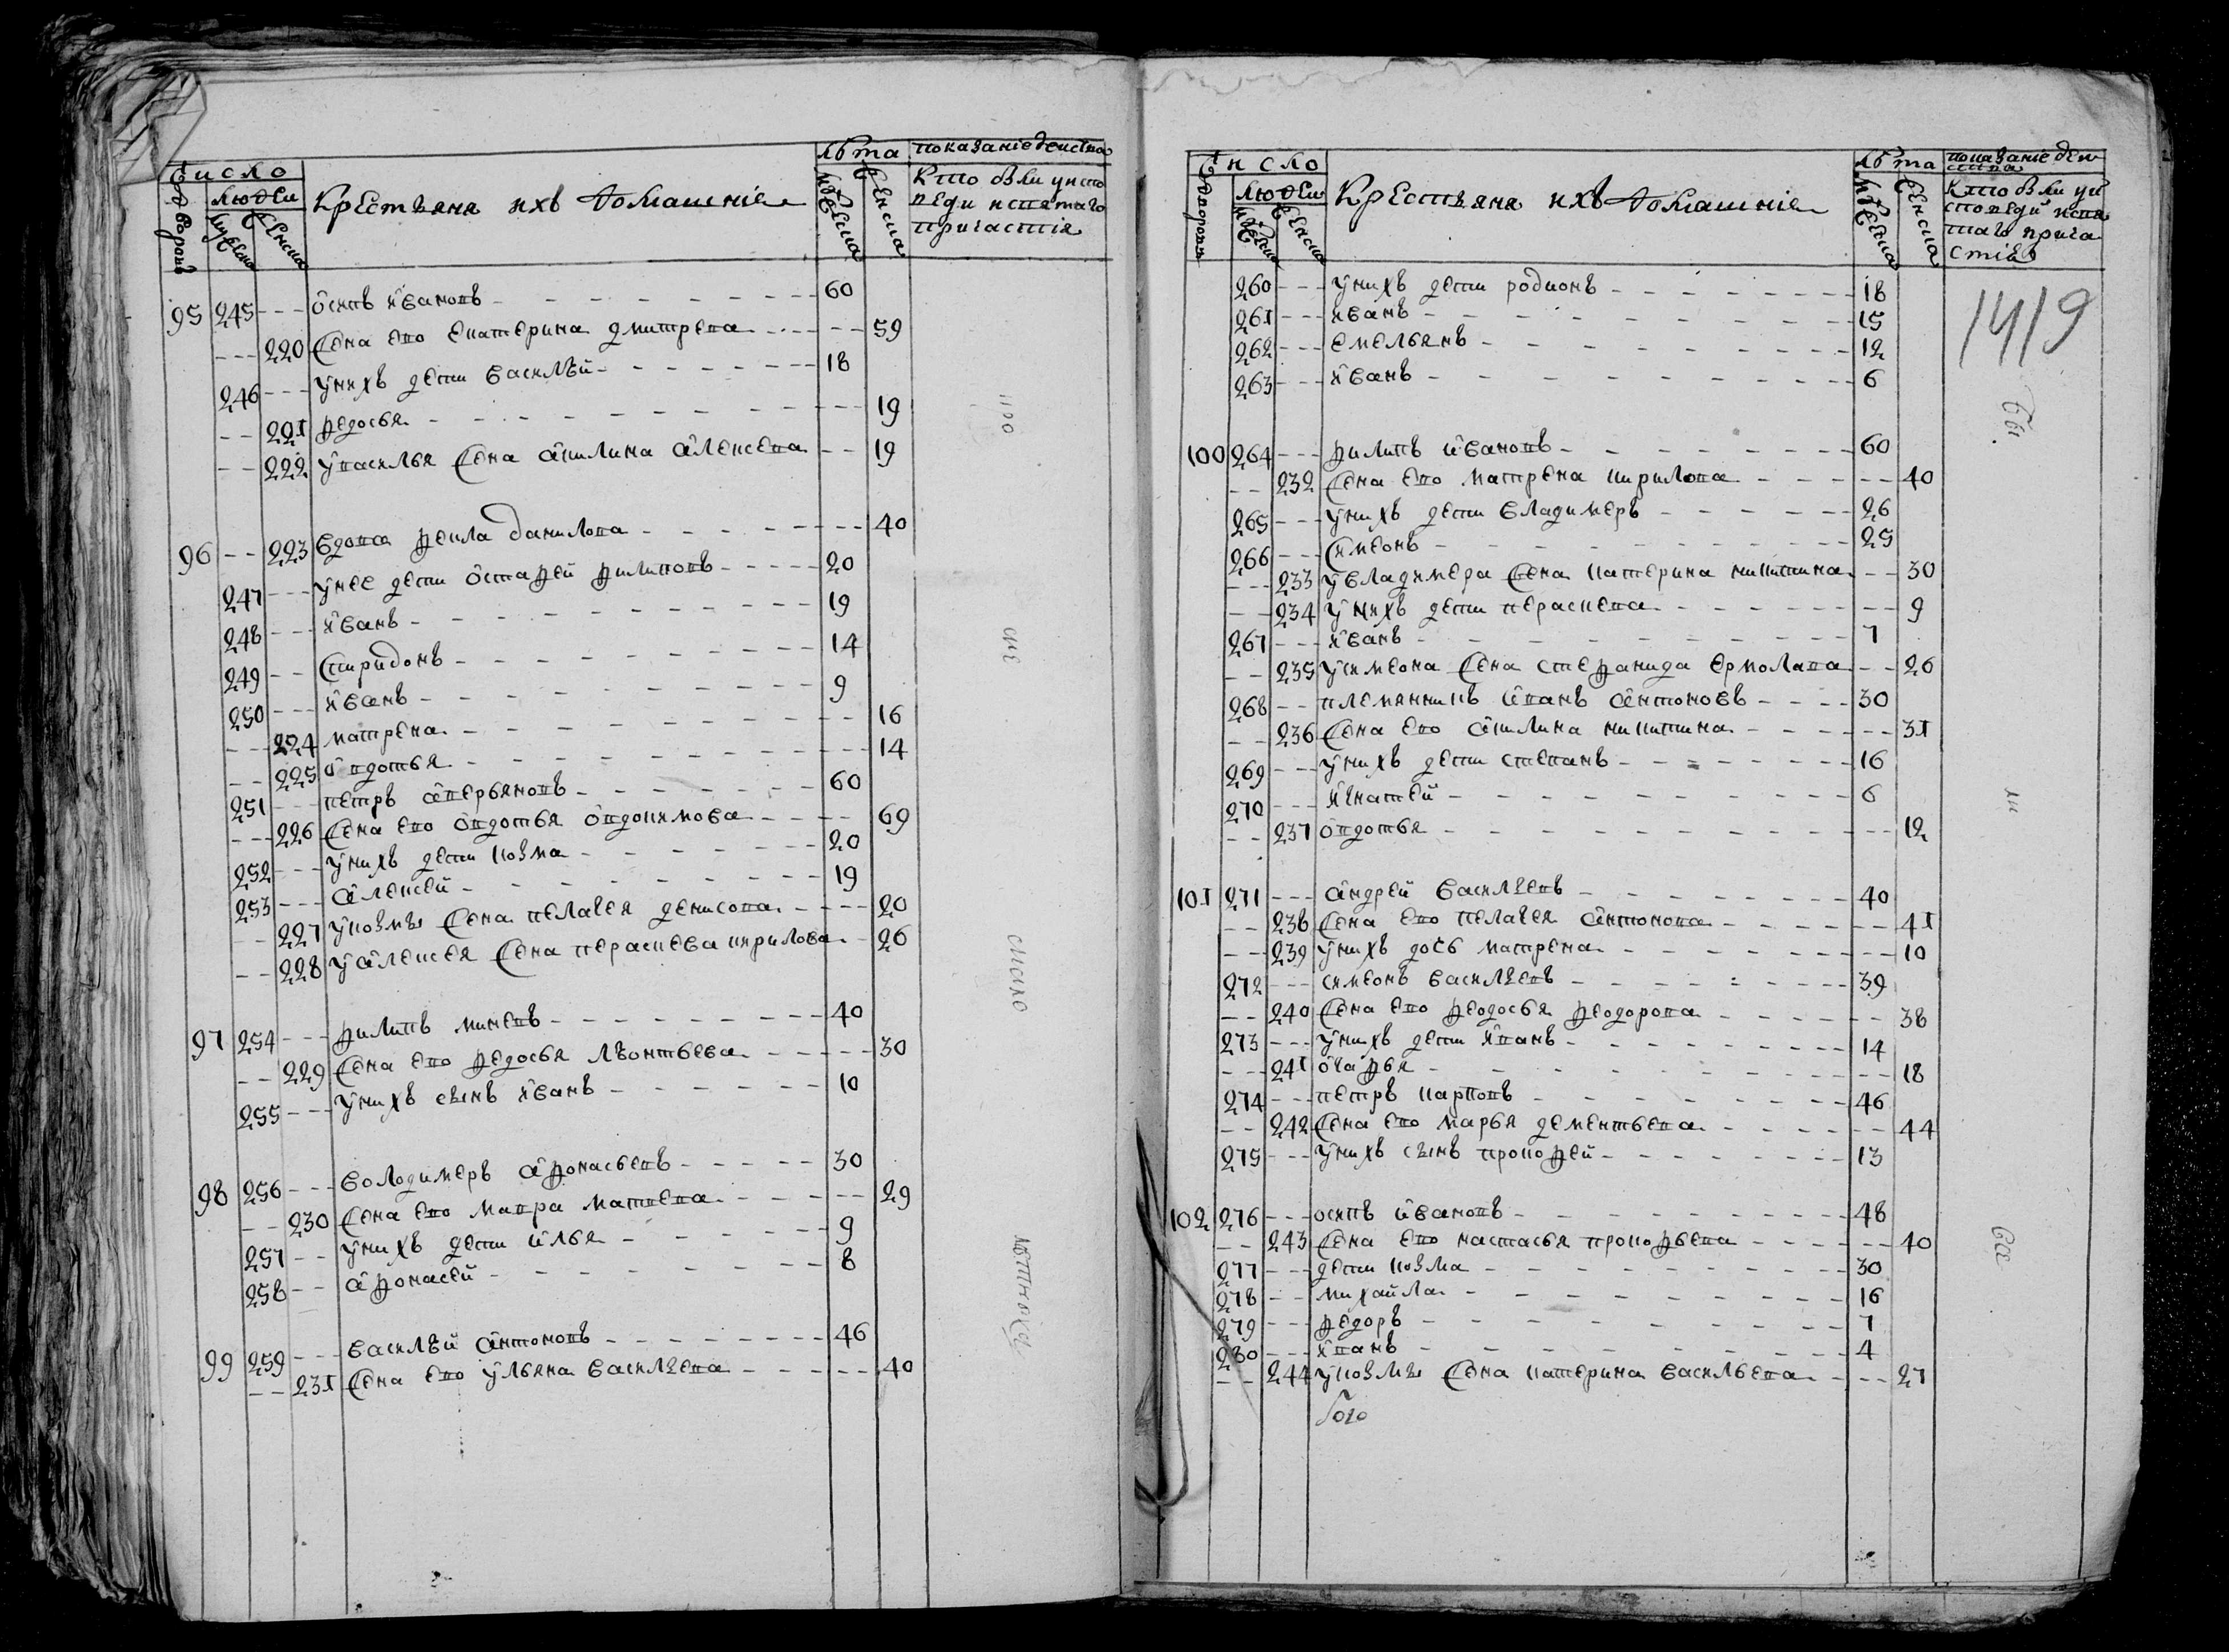 Число
людей
Крестьяня ихъ домашнїе
лѣта
показанїе действа
дворовъ
мужеска
женска
мужеска
женска
Кто были у испо
веди и святаго
причастїя
95 245 осипъ ивановъ 60
220 жена ево екатерина дмитрева 59
246 у нихъ дети василѣй 18
221 федосья 19
222 у василья жена акилина алексева 19
96 223 вдова фекла данилова 40
247 у нее дети остафей филиповъ 20
248 иванъ 19
249 спиридонъ 14
250 иванъ 9
224 матрена 16
225 овдотья 14
251 петръ аверьяновъ 60
226 жена ево овдотья овдокимова 69
252 у нихъ дети козма 20
253 алексей 19
227 у козмы жена пелагея денисова 20
228 у алексея жена пераскева кирилова 26
97 254 филипъ минеевъ 40
229 жена ево федосья лѣонтьева 30
255 у нихъ сынъ иванъ 10
98 256 володимеръ афонасьевъ 30
230 жена ево мавра матвева 29
257 у нихъ дети илья 9
258 афонасей 8
99 259 василѣй антоновъ 46
231 жена ево ульяна василева 40
Число
людей
Крестьяня ихъ домашнїе
лѣта
показанїе дей
ства
дворовъ
мужеска
женска
мужеска
женска
Кто были у и
споведи и свя
таго прича
стїя
1419
260 у нихъ дети родионъ 18
261 иванъ 15
262 емельянъ 12
263 иванъ 6
100 264 филипъ ивановъ 60
232 жена ево матрена кирилова 40
265 у нихъ дети владимеръ 26
266 симеонъ 25
233 у владимера жена катерина никитина 30
234 у нихъ дети пераскева 9
267 иванъ 7
235 у симеона жена стефанида ермолава 26
268 племянникъ иванъ антоновъ 30
236 жена ево акилина никитина 31
269 у нихъ дети степанъ 16
270 игнатей 6
237 овдотья 12
101 271 андрей васильевъ 40
238 жена ево пелагея антонова 41
239 у нихъ дочь матрена 10
272 симеонъ васильевъ 39
240 жена ево феодосья феодорова 38
273 у нихъ дети иванъ 14
241 огафья 18
274 петръ карповъ 46
242 жена ево марья дементьева 44
275 у нихъ сынъ прокофей 13
102 276 осипъ ивановъ 48
243 жена ево настасья прокофьева 40
277 дети козма 30
278 михайла 16
279 федоръ 7
280 иванъ 4
244 у козмы жена катерина васильева 27